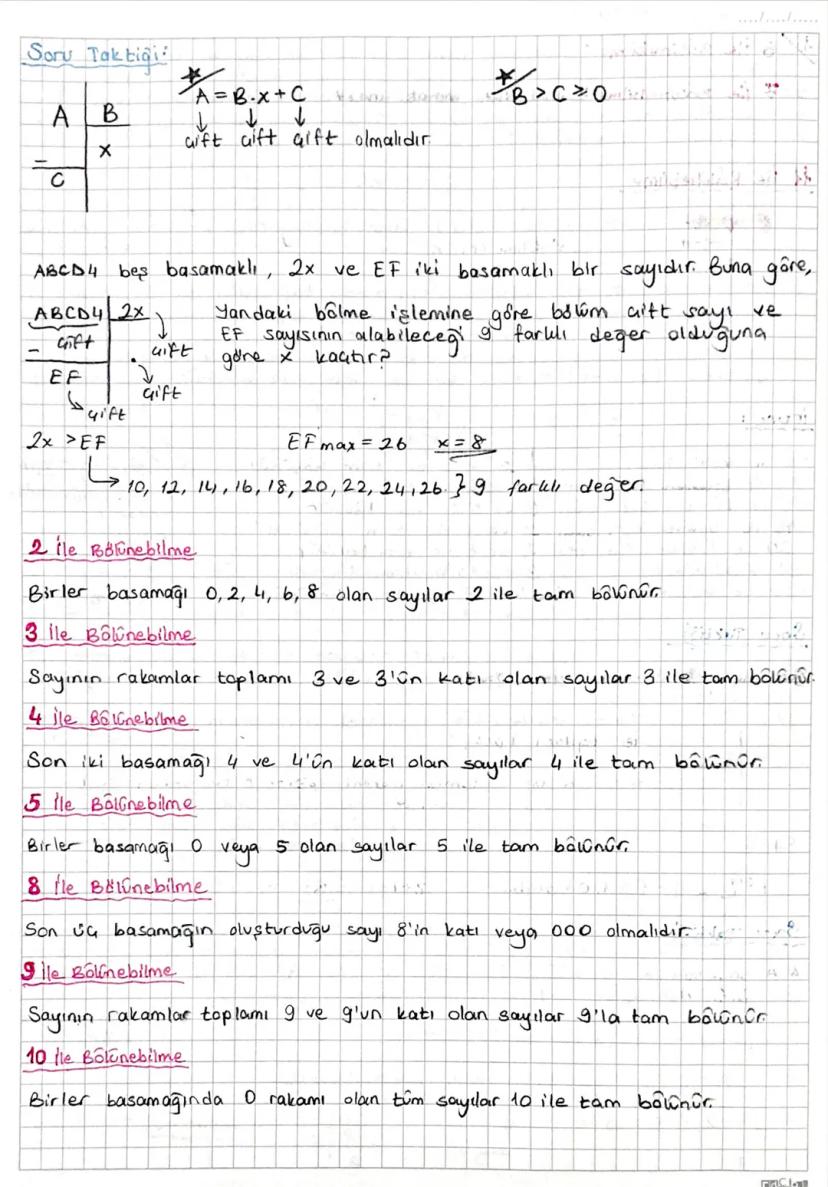 Soru Taktiği:
A = B.x + C
B > C ≥ 0
A B
çift çift çift olmalıdır.
x
C
ABCD4 beş basamaklı, 2x ve EF iki basamaklı bir sayıdır. Buna göre,
ABCD4 2x Yandaki bölme işlemine göre bölüm çift sayı ve
çift çift EF sayısının alabileceği 9 farklı değer olduğuna
göre x kaçtır?
EF çift
çift
2x > EF EFmax = 26 x = 8
10, 12, 14, 16, 18, 20, 22, 24, 26 } 9 farklı değer.
2 ile Bölünebilme
Birler basamağı 0, 2, 4, 6, 8 olan sayılar 2 ile tam bölünür.
3 ile Bölünebilme
Sayının rakamlar toplamı 3 ve 3'ün katı olan sayılar 3 ile tam bölünür.
4 ile Bölünebilme
Son iki basamağı 4 ve 4'ün katı olan sayılar 4 ile tam bölünür.
5 ile Bölünebilme
Birler basamağı 0 veya 5 olan sayılar 5 ile tam bölünür.
8 ile Bölünebilme
Son üç basamağın oluşturduğu sayı 8'in katı veya 000 olmalıdır.
9 ile Bölünebilme
Sayının rakamlar toplamı 9 ve 9'un katı olan sayılar 9'la tam bölünür.
10 ile Bölünebilme
Birler basamağında 0 rakamı olan tüm sayılar 10 ile tam bölünür.